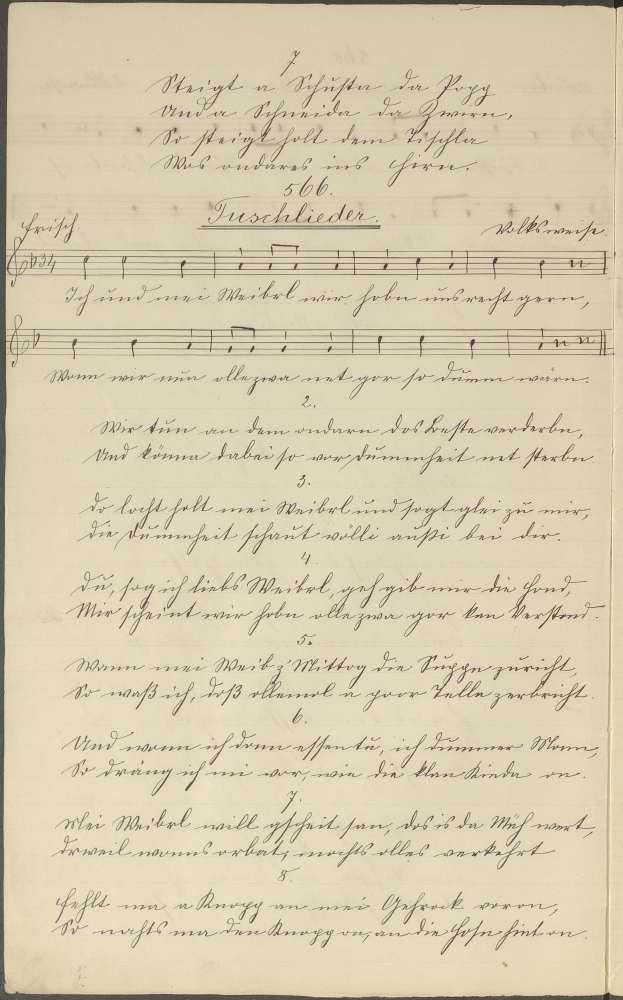 7.
Steigt a Schusta da Popp
Und a Schneida da Zwirn,
So steigt holt dem Tischla
Wos ondares ins Hirn.
566.
Tuschlieder.
Frisch.
Volksweise.
Ich und mei Weiberl wir hobn uns recht gern,
Wonn wir nua olle zwa net gor so dumm wärn.
2.
Wir tun an dem ondarn dos Beste verderbn,
Und könna dabei so vor Dummheit net sterbn.
3.
Do locht holt mei Weiberl und sogt glei zu mir,
Die Dummheit schaut völli außi bei dir.
4.
Du, sog ich liebs Weiberl, geh gib mir die Hond,
Mir scheint wir hobn olle zwa gor kan Verstond.
5.
Wann mei Weib z' Mittog die Suppn zuricht,
So waß ich, doß ollemol a poor Tella zerbricht.
6.
Und wonn ich donn essen tu, ich dummer Monn,
So dräng ich mi vor, wie die klan Kinda on.
7.
Mei Weiberl will gscheit san, dos is da Müh wert,
Derweil wonns orbat, mochts olles verkehrt
8.
Fehlt ma a Knopp an mei Gehrock voron,
So nahts ma den Knopp on, an die Hosn hint on.